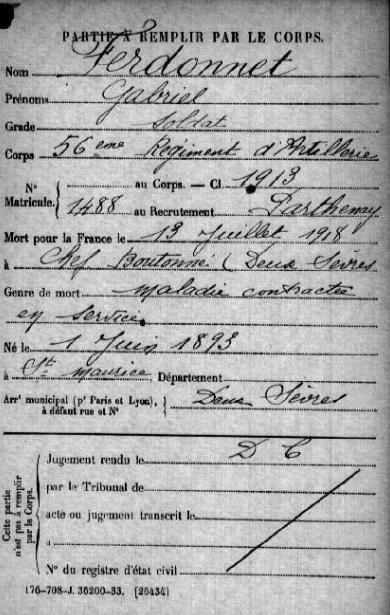 PARTIE À REMPLIR PAR LE CORPS.
Nom Ferdonnet
Prénoms Gabriel
Grade Soldat
Corps 56ème Régiment d'Artillerie
N° Matricule. { au Corps. — Cl. 1913
1488 au Recrutement Parthenay
Mort pour la France le 13 Juillet 1918
à Chef Boutonne (Deux Sèvres
Genre de mort maladie contractée
en service
Né le 1 Juin 1893
à St Maurice Département
Arr^t municipal (p^r Paris et Lyon), à défaut rue et N° } Deux Sèvres
Cette partie n'est pas à remplir par le Corps.
Jugement rendu le D C
par le Tribunal de
acte ou jugement transcrit le
à
N° du registre d'état civil
176-708-J. 36200-33. [26434]